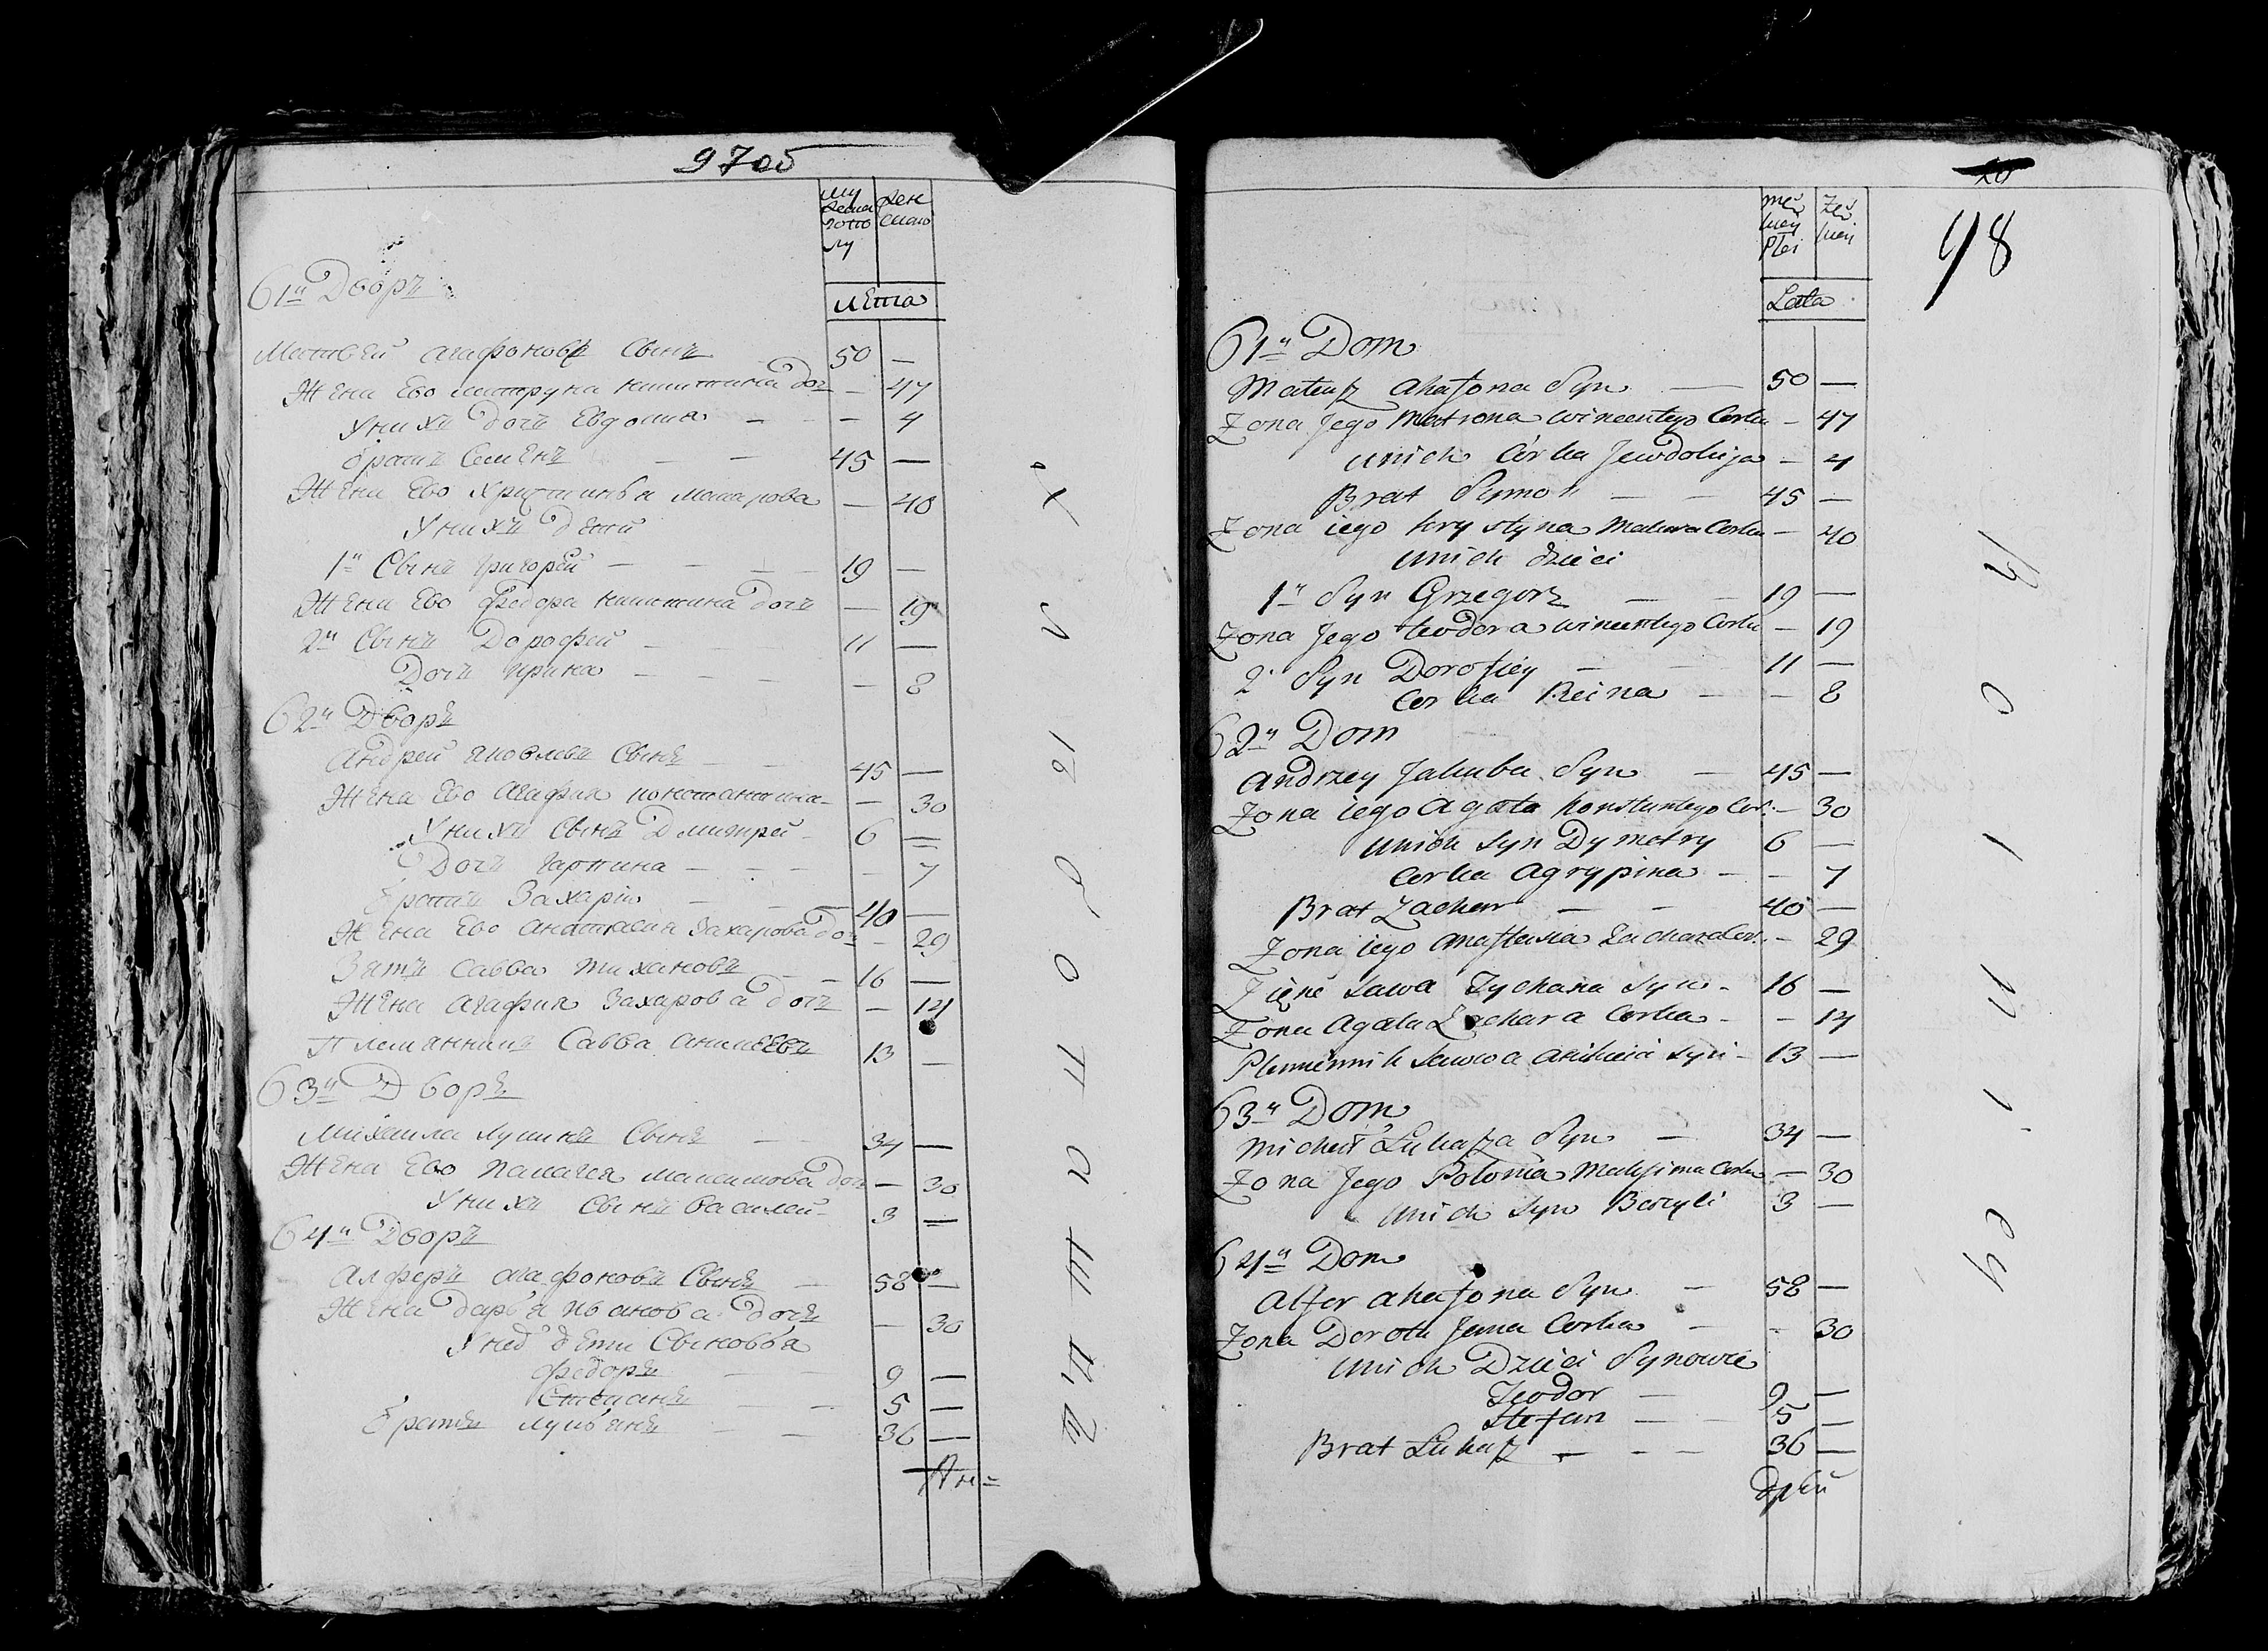 97об
му
жеска
полу
жен
скаго
лета
61й Дворъ
Матвей Агафоновъ Сынъ — 50 —
Жена Ево Матруна Никитина доч — 47
У них Дочь Евдокия — — — 4
братъ Семенъ — — 45 —
Жена Ево Христинья Макарова — 40
У нихъ Дети
1й Сынъ Григорей — — — 19 —
Жена Ево Федора Никитина дочь — 19
2й Сынъ Дорофей — 11 —
Дочь Ирина — — — — 8
62й Дворъ
Андрей Яковлевъ Сынъ — — 45 —
Жена Ево Агафия Константина — — 30
У нихъ Сынъ Дмитрей — 6 —
Дочь Гарпина — — — — 7
Братъ Захарiй — — 40 —
Жена Ево Анастасия Захарова доч — 29
Зять Савва Тихановъ — 16 —
Жена Агафия Захарова дочь — 14
Племянникъ Савва Аникеевъ 13 —
63й Дворъ
Михаила Лукинъ Сынъ — 34 —
Жена Ево Палагея Максимова доч — 30
У нихъ Сынъ Василей — 3 —
64й Дворъ
Алферъ Агафоновъ Сынъ — 58 —
Жена Дарья Иванова дочь — 30
У них дети Сыновья
Федоръ — — 9 —
Степанъ — — 5 —
Братъ Лукьянъ — — 36 —
Ан=
20
98
męż
kiey
Płci
Żeń
skiey
Lata
61й Dom
Mateusz Ahafona Syn — 50 —
Zona Jego Matrona Wincentego Corka — 47
unich Córka Jewdokija — 4
Brat Symon — — 45 —
Zona iego Krystyna Makara Corka — 40
unich dzieci
1й Syn Grzegorz — — 19 —
Zona Jego Teodora Wincentego Corka — 19
2й Syn Dorofiey — — 11 —
Corka Reina — — 8
62й Dom
Andrzey Jakuba Syn — 45 —
Zona iego Agata Konstantego Cor. — 30
unich Syn Dymetry 6 —
Corka Agrypina — — 7
Brat Zachar — — 40 —
Zona iego Anastasia Zachara Cor. — 29
Zięnć Sawa Tychana Syn — 16 —
Zona Agata Zachara Corka — — 14
Plemiennik Sawwa Anikieia Syn — 13 —
63й Dom
Michał Łukasza Syn — 34 —
Zona Jego Polonia Maksima Corka — 30
unich Syn Bazyli 3 —
64й Dom
Alfer Ahafona Syn — 58 —
Zona Dorota Jana Corka — — 30
unich Dzieci Synowie
Teodor — 9 —
Stefan — — 5 —
Brat Łukasz — — — 36 —
дрей